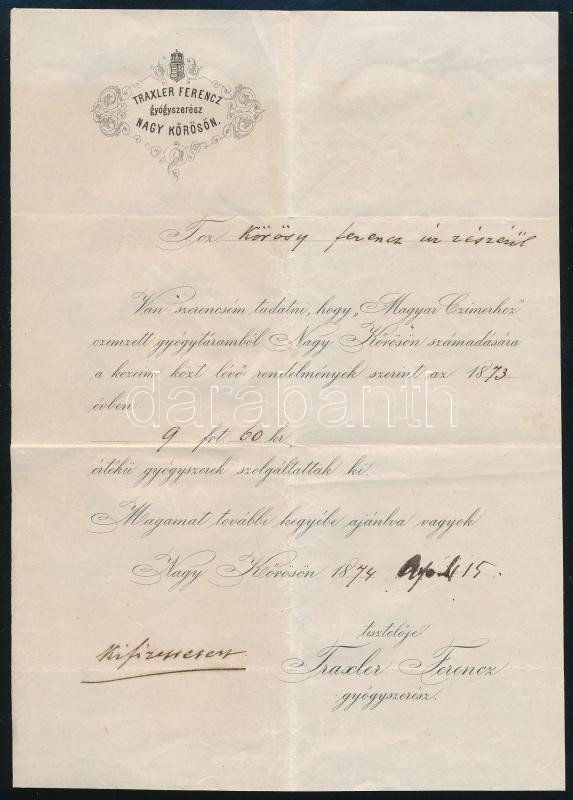 TRAXLER FERENCZ
gyógyszerész
NAGY KŐRÖSÖN.
Kőrösy ferencz úr részéről
Van szerencsém tudatni, hogy „Magyar Czimerhez"
czimzett gyógytáramból Nagy Kőrösön számadására
a kezeim közt lévő rendelmények szerint az 1873
évben
9 frt. 60 kr
értékü gyógyszerek szolgáltattak ki.
Magamat további kegyébe ajánlva vagyok
Nagy Kőrösön 1874 April 15.
tisztelője
Traxler Ferencz
gyógyszerész.
darabanth